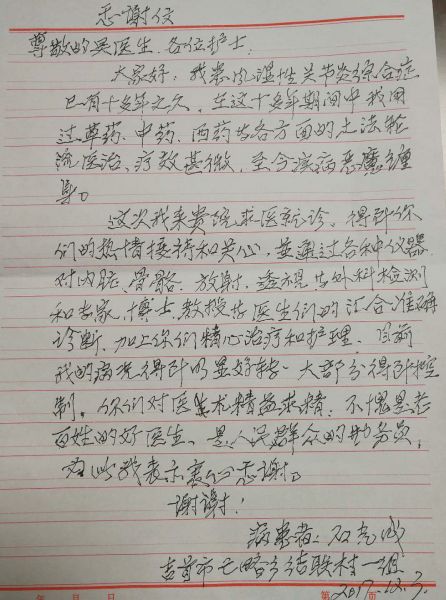 感谢信
尊敬的吴医生、各位护士:
大家好,我患风湿性关节炎综合症
已有十多年之久,在这十多年期间中我用
过草药、中药、西药等各方面的土法轮
流医治,疗效甚微,至今疾病恶魔缠
身。
这次我来贵院求医就诊,得到你
们的热情接待和关心,并通过各种仪器
对内脏、骨骼、放射、透视等外科检测
和专家、博士、教授等医生们的汇合准确
诊断,加上你们精心治疗和护理,目前
我的病况得到明显好转,大部分得到控
制。你们对医术精益求精,不愧是老
百姓的好医生,是人民群众的勤务员,
为此我表示衷心感谢。
谢谢!
病患者:石
吉首市乡结联村一组
2017.12.3.
年 月 日 第 页